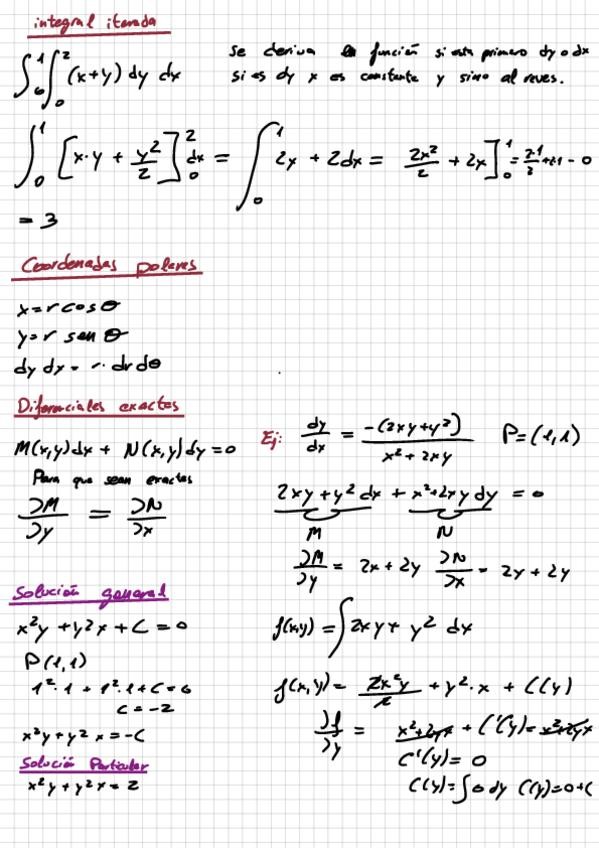 integral iterada
∫₀¹ ∫₀² (x+y) dy dx
Se deriva la función si esta primero dy o dx
si es dy x es constante y sino al reves.
∫₀¹ [x·y + y²/2]₀² dx = ∫₀¹ 2x + 2dx = 2x²/2 + 2x]₀¹ = 2·1/2 + 2·1 - 0
= 3
Coordenadas polares
x = r cos θ
y = r sen θ
dy dx = r · dr dθ
Diferenciales exactes
M(x,y)dx + N(x,y)dy = 0
Para que sean exactas
∂M/∂y = ∂N/∂x
Ej: dy/dx = -(2xy+y²)/x² + 2xy P=(1,1)
2xy + y² dx + x²+2xy dy = 0
M N
∂M/∂y = 2x + 2y ∂N/∂x = 2y + 2y
f(x,y) = ∫ 2xy + y² dx
f(x,y) = 2x²y/2 + y²·x + C(y)
∂f/∂y = x²+2yx + C'(y) = x²+2yx
C'(y) = 0
C(y) = ∫ 0 dy C(y) = 0+C
Solución general
x²y + y²x + C = 0
P(1,1)
1²·1 + 1²·1 + C = 0
C = -2
x²y + y²x = -C
Solución Particular
x²y + y²x = 2